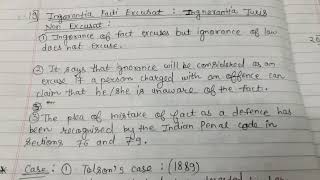 19) Ingorantia Facti Excusat : Ingnorantia Juris
Non Excusat :
① Ingorance of fact excuses but ignorance of law
does not excuse.
② It says that ignorance will be considered as an
excuse if a person charged with an offence can
claim that he/she is unaware of the fact.
③ The plea of mistake of fact as a defence has
been recognised by the Indian Penal code in
sections 76 and 79.
* Case : ① Tolson's case : (1889)